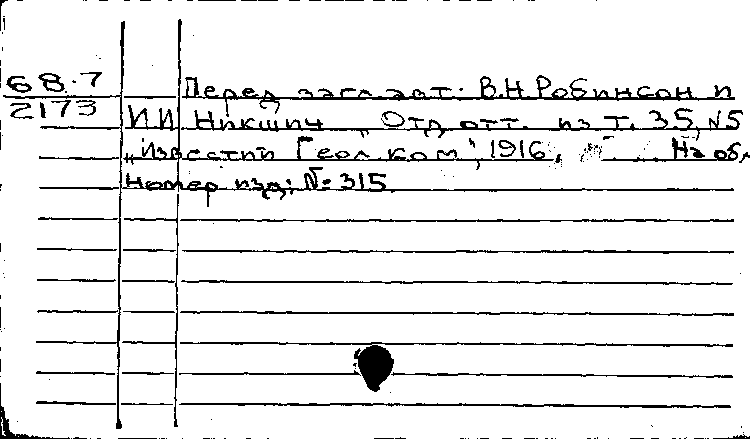 68.7
2173
Перед загл. авт: В.Н. Робинсон и
И.И Никшич „Отд. отт. из т. 35, №5
„Известий Геол. ком“, 1916, На об
Номер изд: №315.